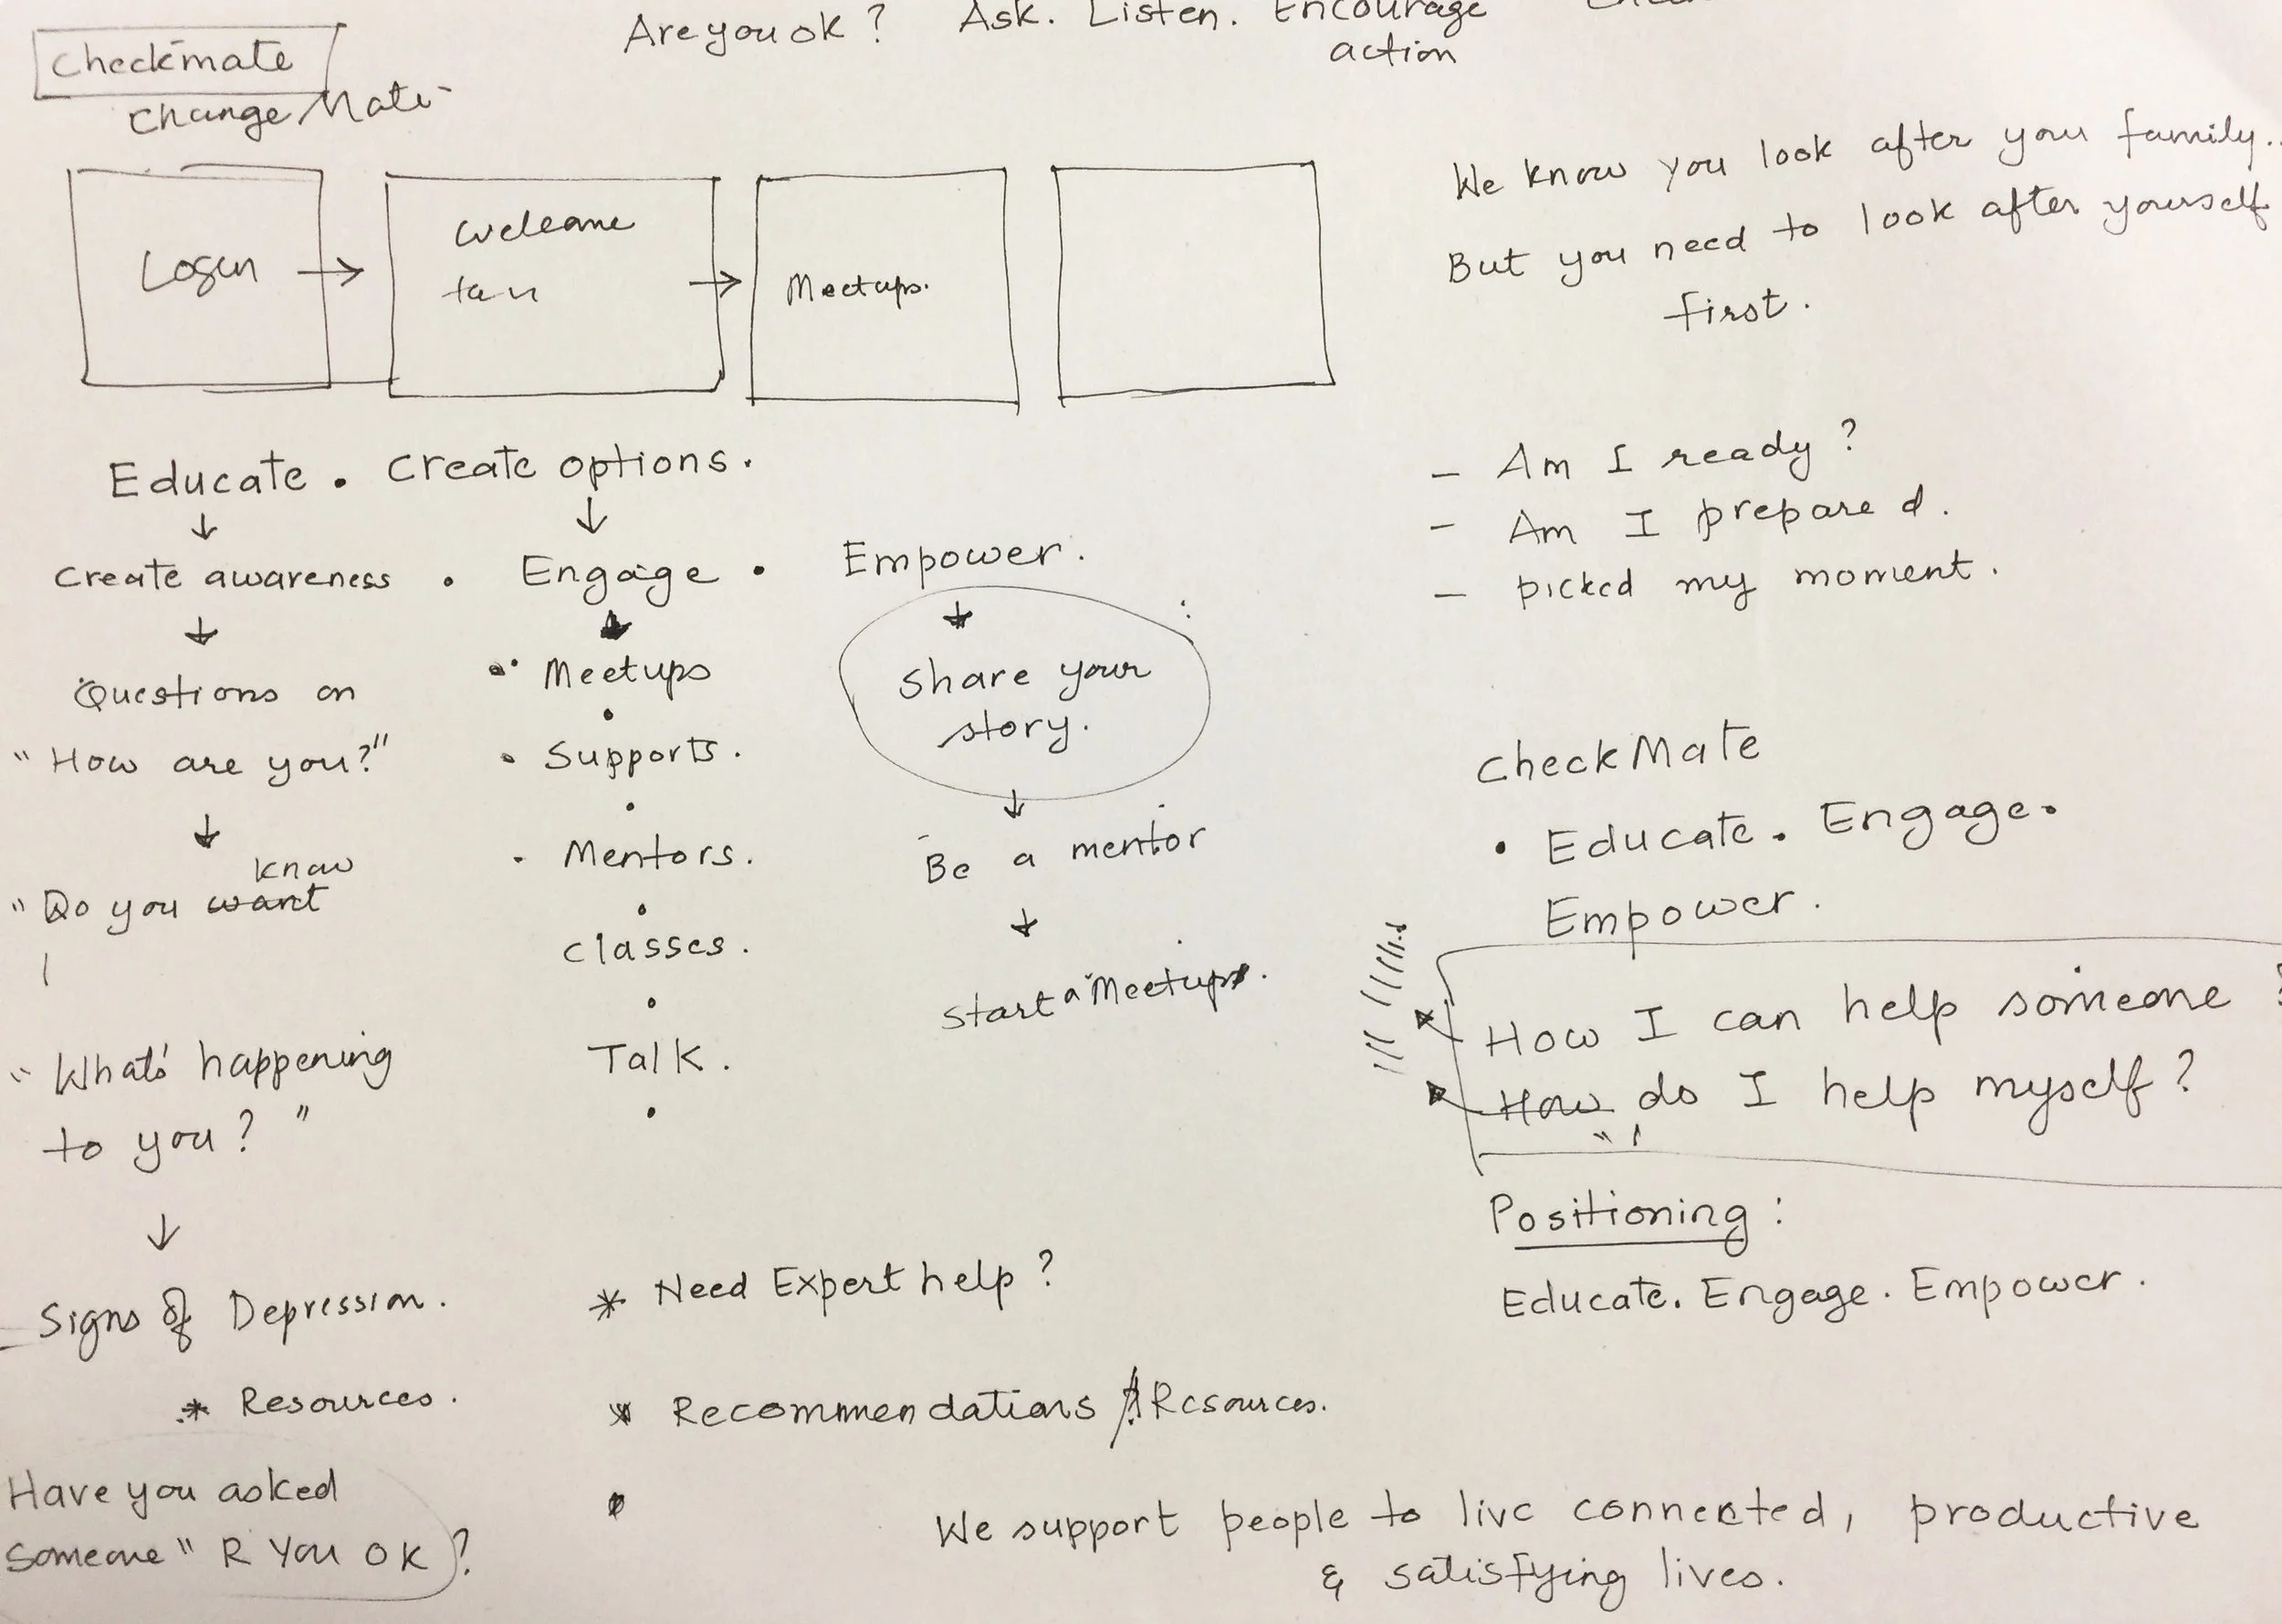 Are you ok? Ask. Listen. Encourage
action
Checkmate
Change Mate
Login
Welcome
Meetups.
We know you look after your family..
But you need to look after yourself
first.
Educate. Create options.
Create awareness . Engage . Empower.
Questions on
"How are you?"
know
"Do you want
"What's happening
to you?"
Signs of Depression.
* Resources.
Have you asked
someone "R You OK?
• Meetups
• Supports.
• Mentors.
classes.
Talk.
share your
story.
Be a mentor
Start a Meetup.
* Need Expert help?
* Recommendations & Resources.
- Am I ready?
- Am I prepared.
- picked my moment.
CheckMate
• Educate. Engage.
Empower.
How I can help someone?
How do I help myself?
Positioning:
Educate. Engage. Empower.
We support people to live connected, productive
& satisfying lives.